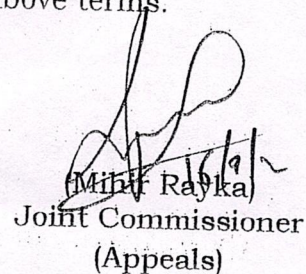 above terms.
(Mihir Rayka)
Joint Commissioner
(Appeals)